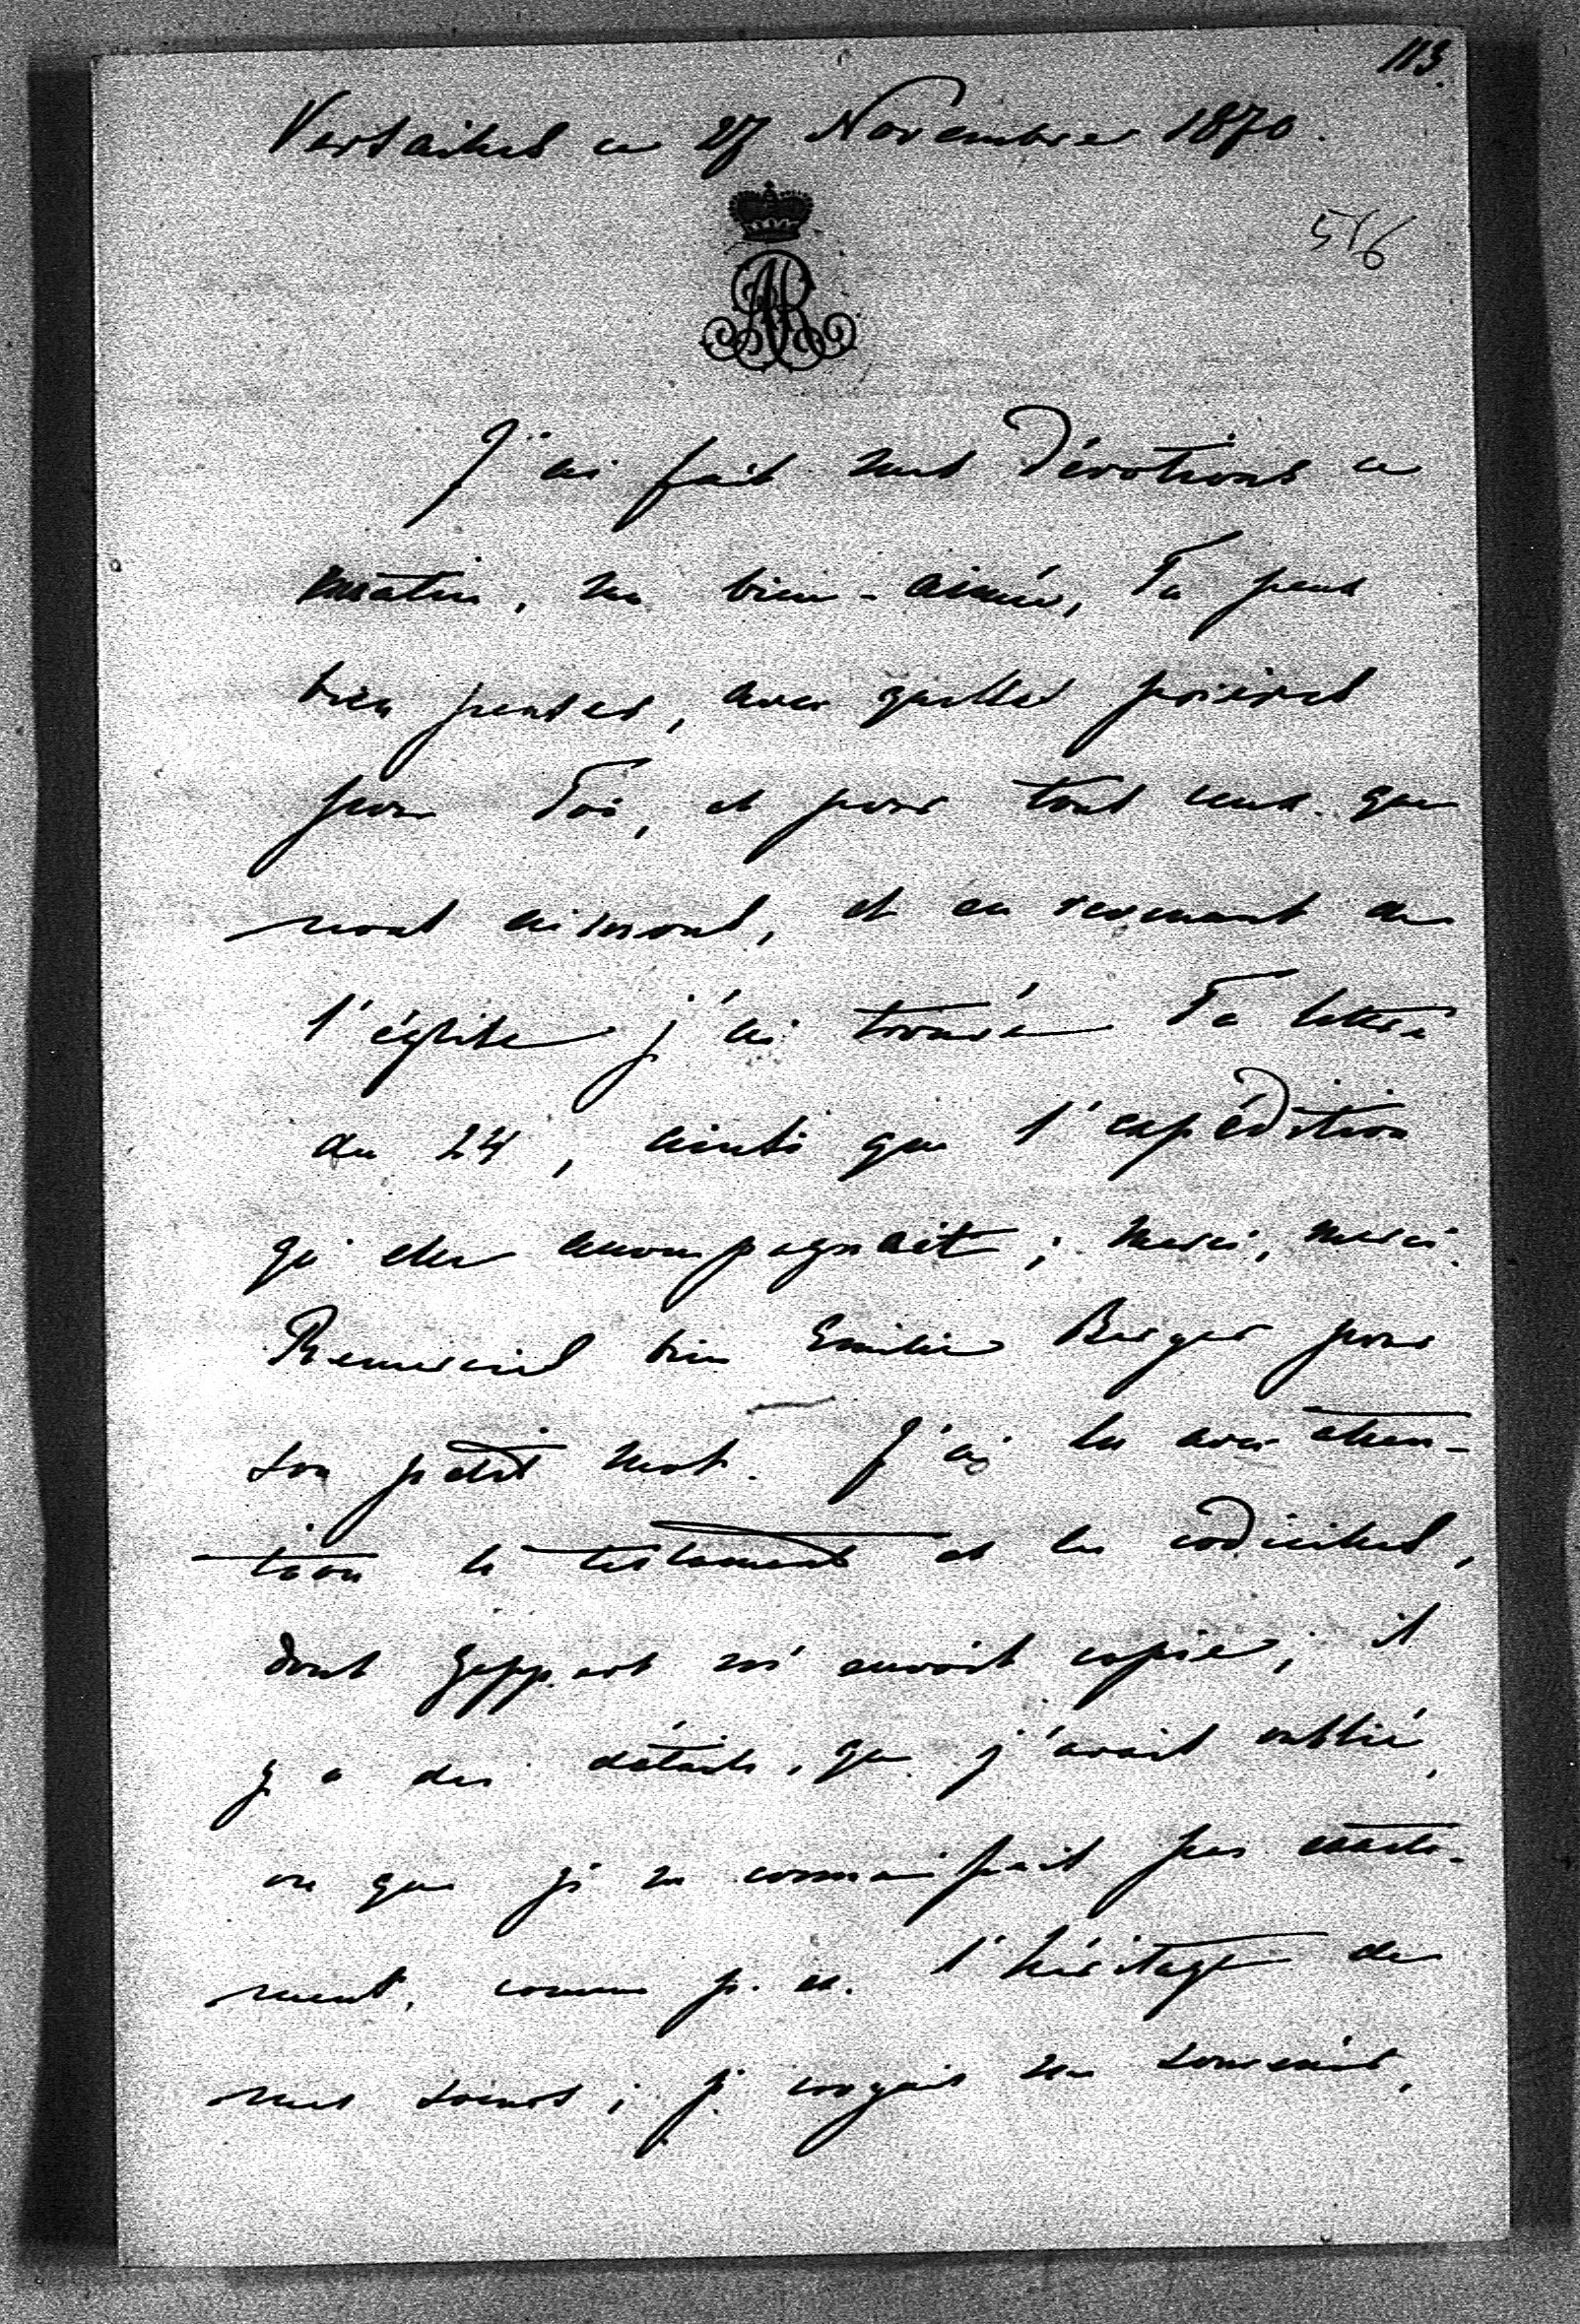 113.
Versailles ce 27 Novembre 1870.
516
AR
J'ai fait mes dévotions ce
matin, ma bien-aimée, Tu peux
bien penser, avec quelles prières
pour Toi, et pour tous ceux que
nous aimons, et en revenant de
l'église j'ai trouvé Ta lettre
du 24, ainsi que l'expédition
qu'elle accompagnait; merci, merci.
Remerciez bien Emilie Berger pour
son petit mot. J'ai lu avec atten-
tion le testament et les codicilles,
dont Geppert m'envoit copie; il
y a des détails, que j'avais oublié,
ou que je ne connaissais pas exacte-
ment, comme p. ex. l'héritage de
mes soeurs; je croyais me souvenir,